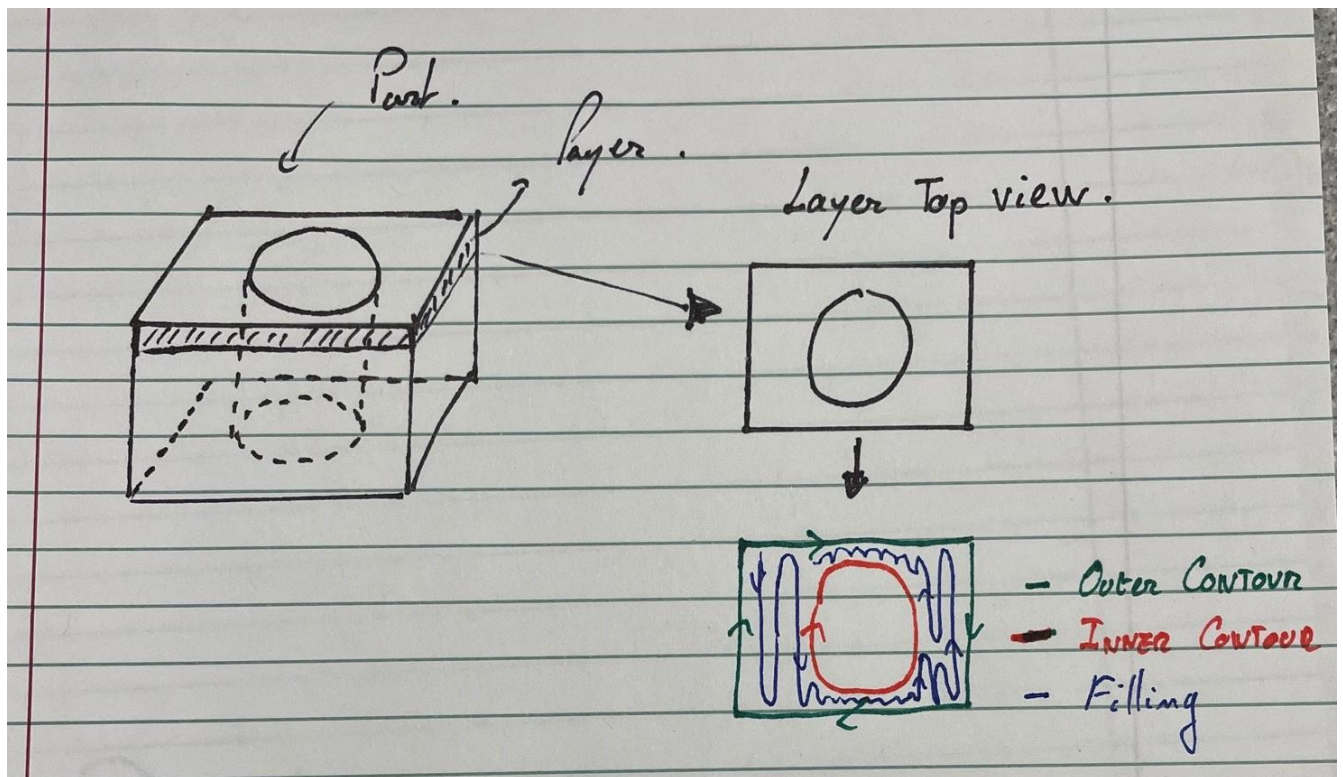 Part.
Layer.
Layer Top view.
- Outer Contour
- Inner Contour
- Filling